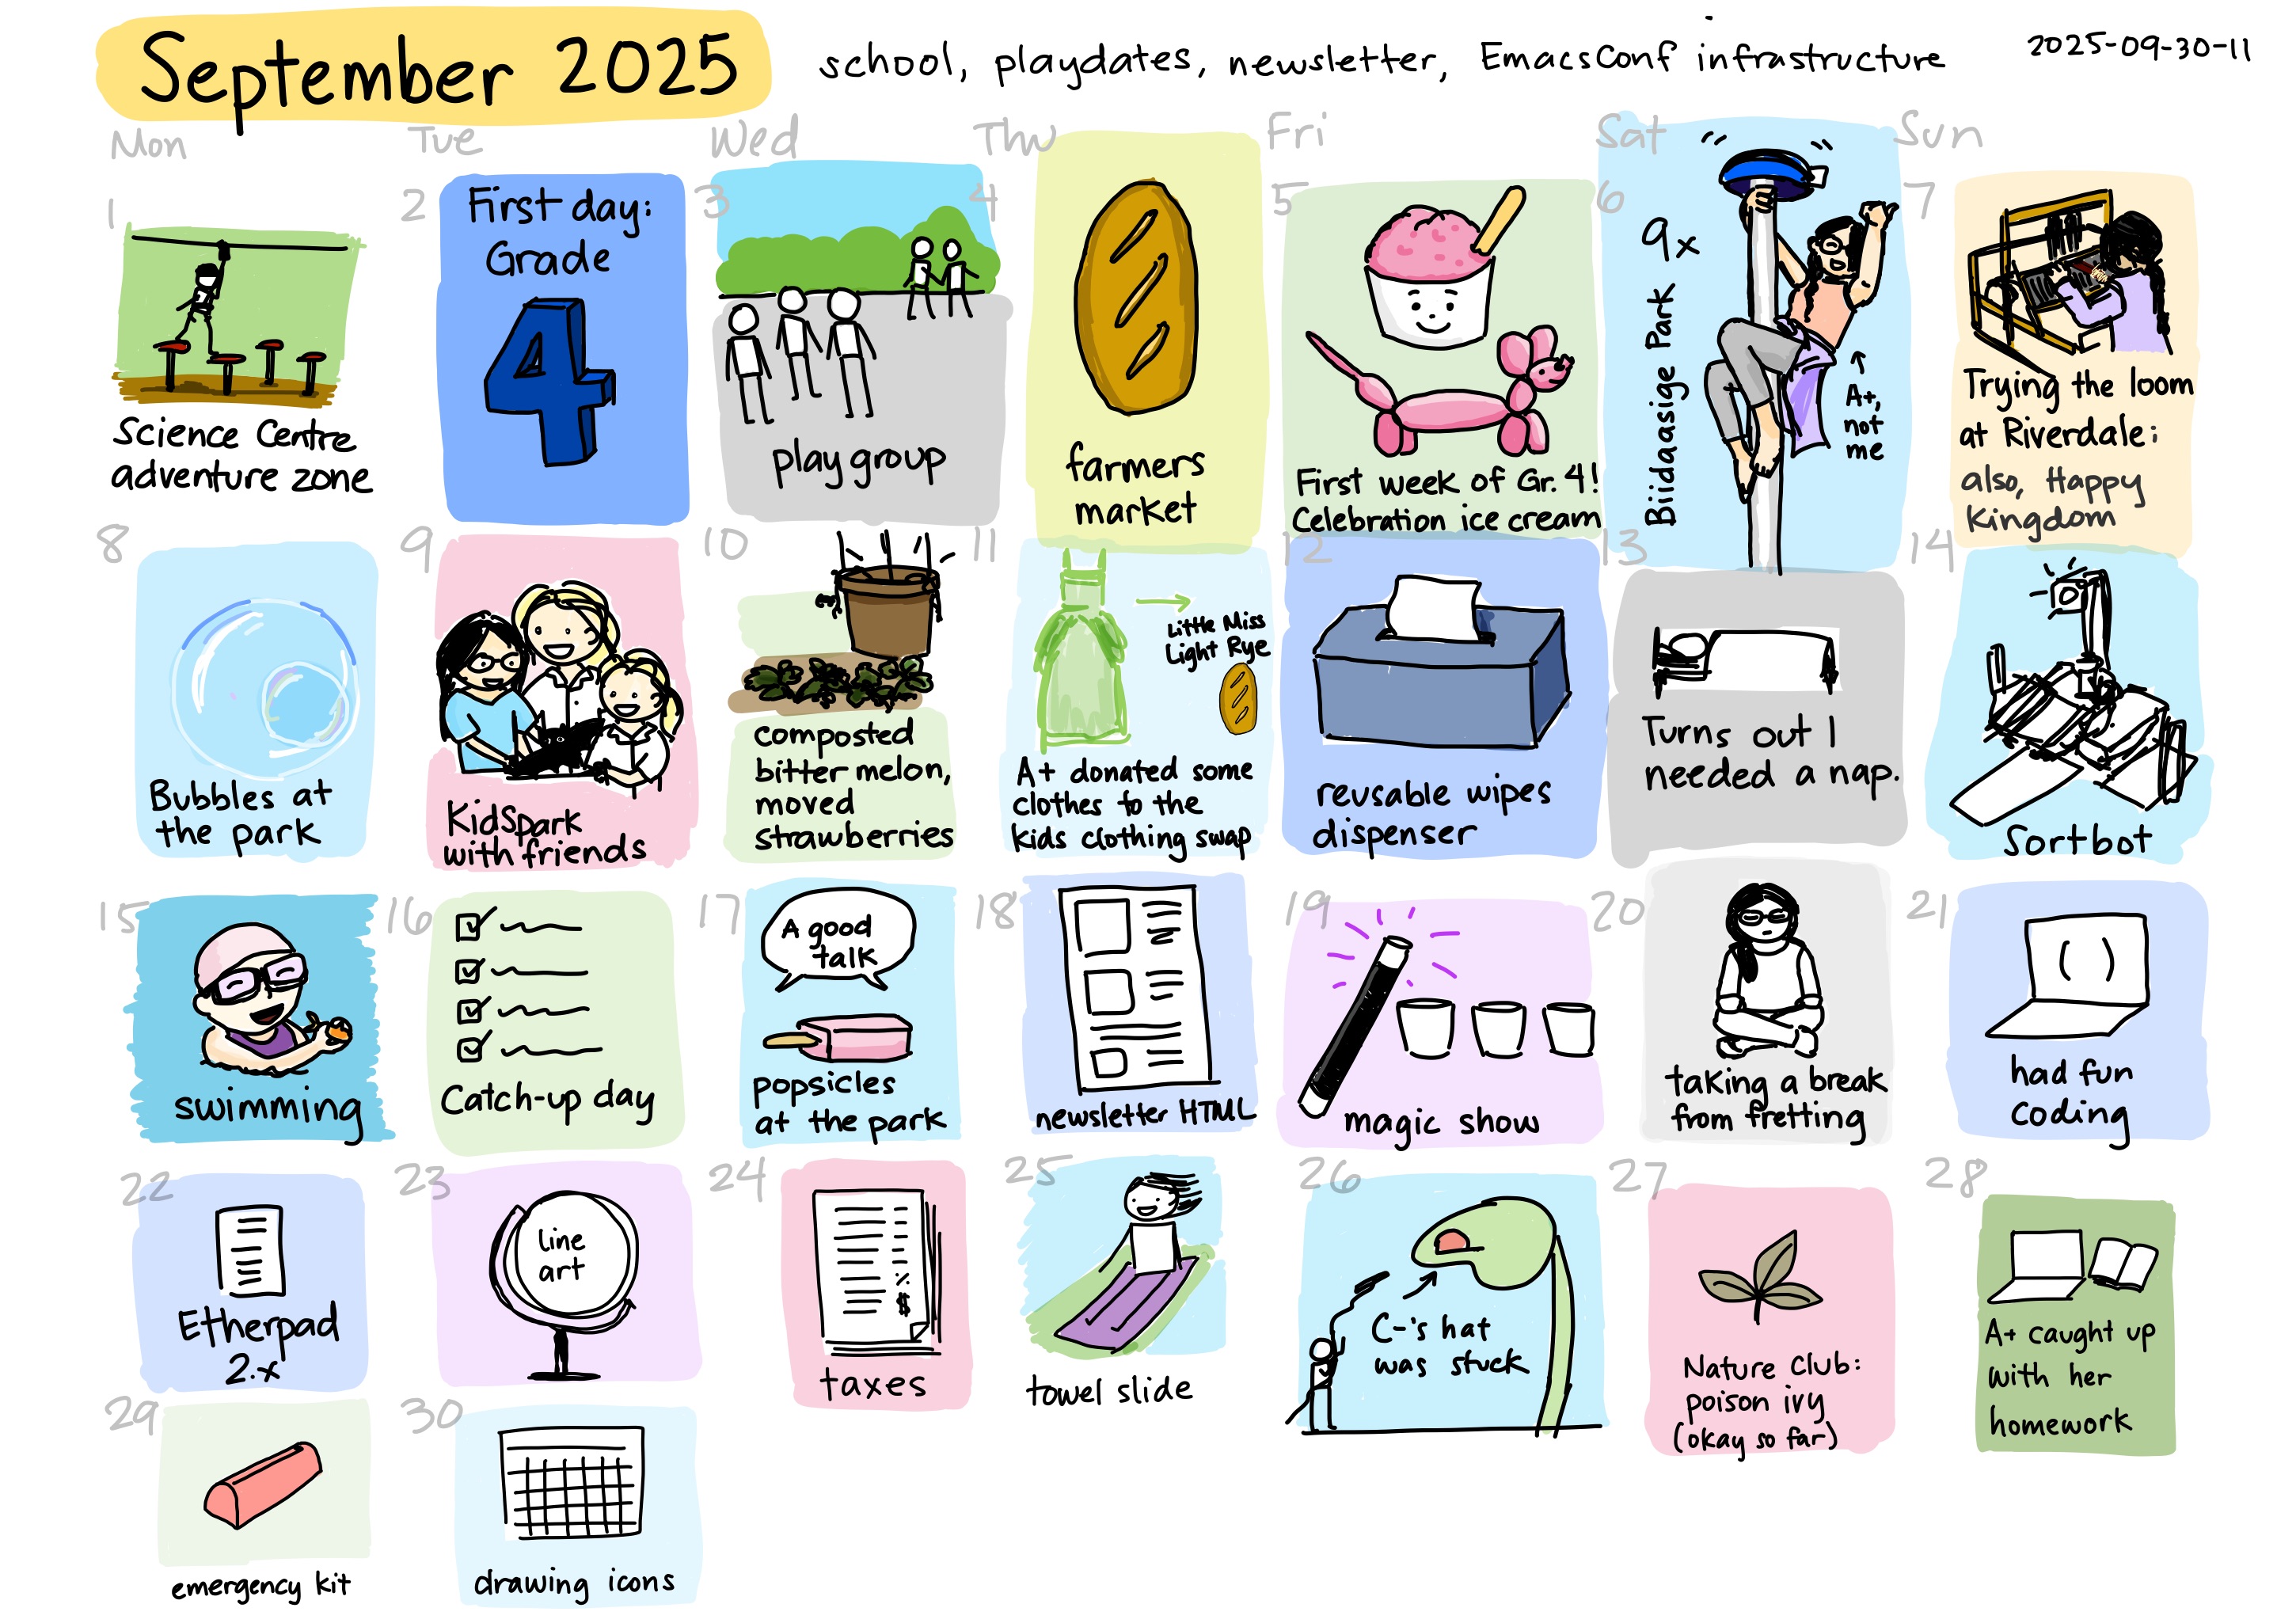 September 2025
school, playdates, newsletter, EmacsConf infrastructure
2025-09-30-11
Mon
Tue
Wed
Thu
Fri
Sat
Sun
1
Science Centre
adventure zone
2
First day:
Grade
4
3
playgroup
4
farmers
market
5
First week of Gr. 4!
Celebration ice cream
6
Biidaasige Park 9x
A+,
not
me
7
Trying the loom
at Riverdale;
also, Happy
Kingdom
8
Bubbles at
the park
9
KidSpark
with friends
10
composted
bitter melon,
moved
strawberries
11
Little Miss
Light Rye
A+ donated some
clothes to the
kids clothing swap
12
reusable wipes
dispenser
13
Turns out I
needed a nap.
14
Sortbot
15
swimming
16
Catch-up day
17
A good
talk
popsicles
at the park
18
newsletter HTML
19
magic show
20
taking a break
from fretting
21
( )
had fun
coding
22
Etherpad
2.x
23
line
art
24
%
$
taxes
25
towel slide
26
C-'s hat
was stuck
27
Nature Club:
poison ivy
(okay so far)
28
A+ caught up
with her
homework
29
emergency kit
30
drawing icons